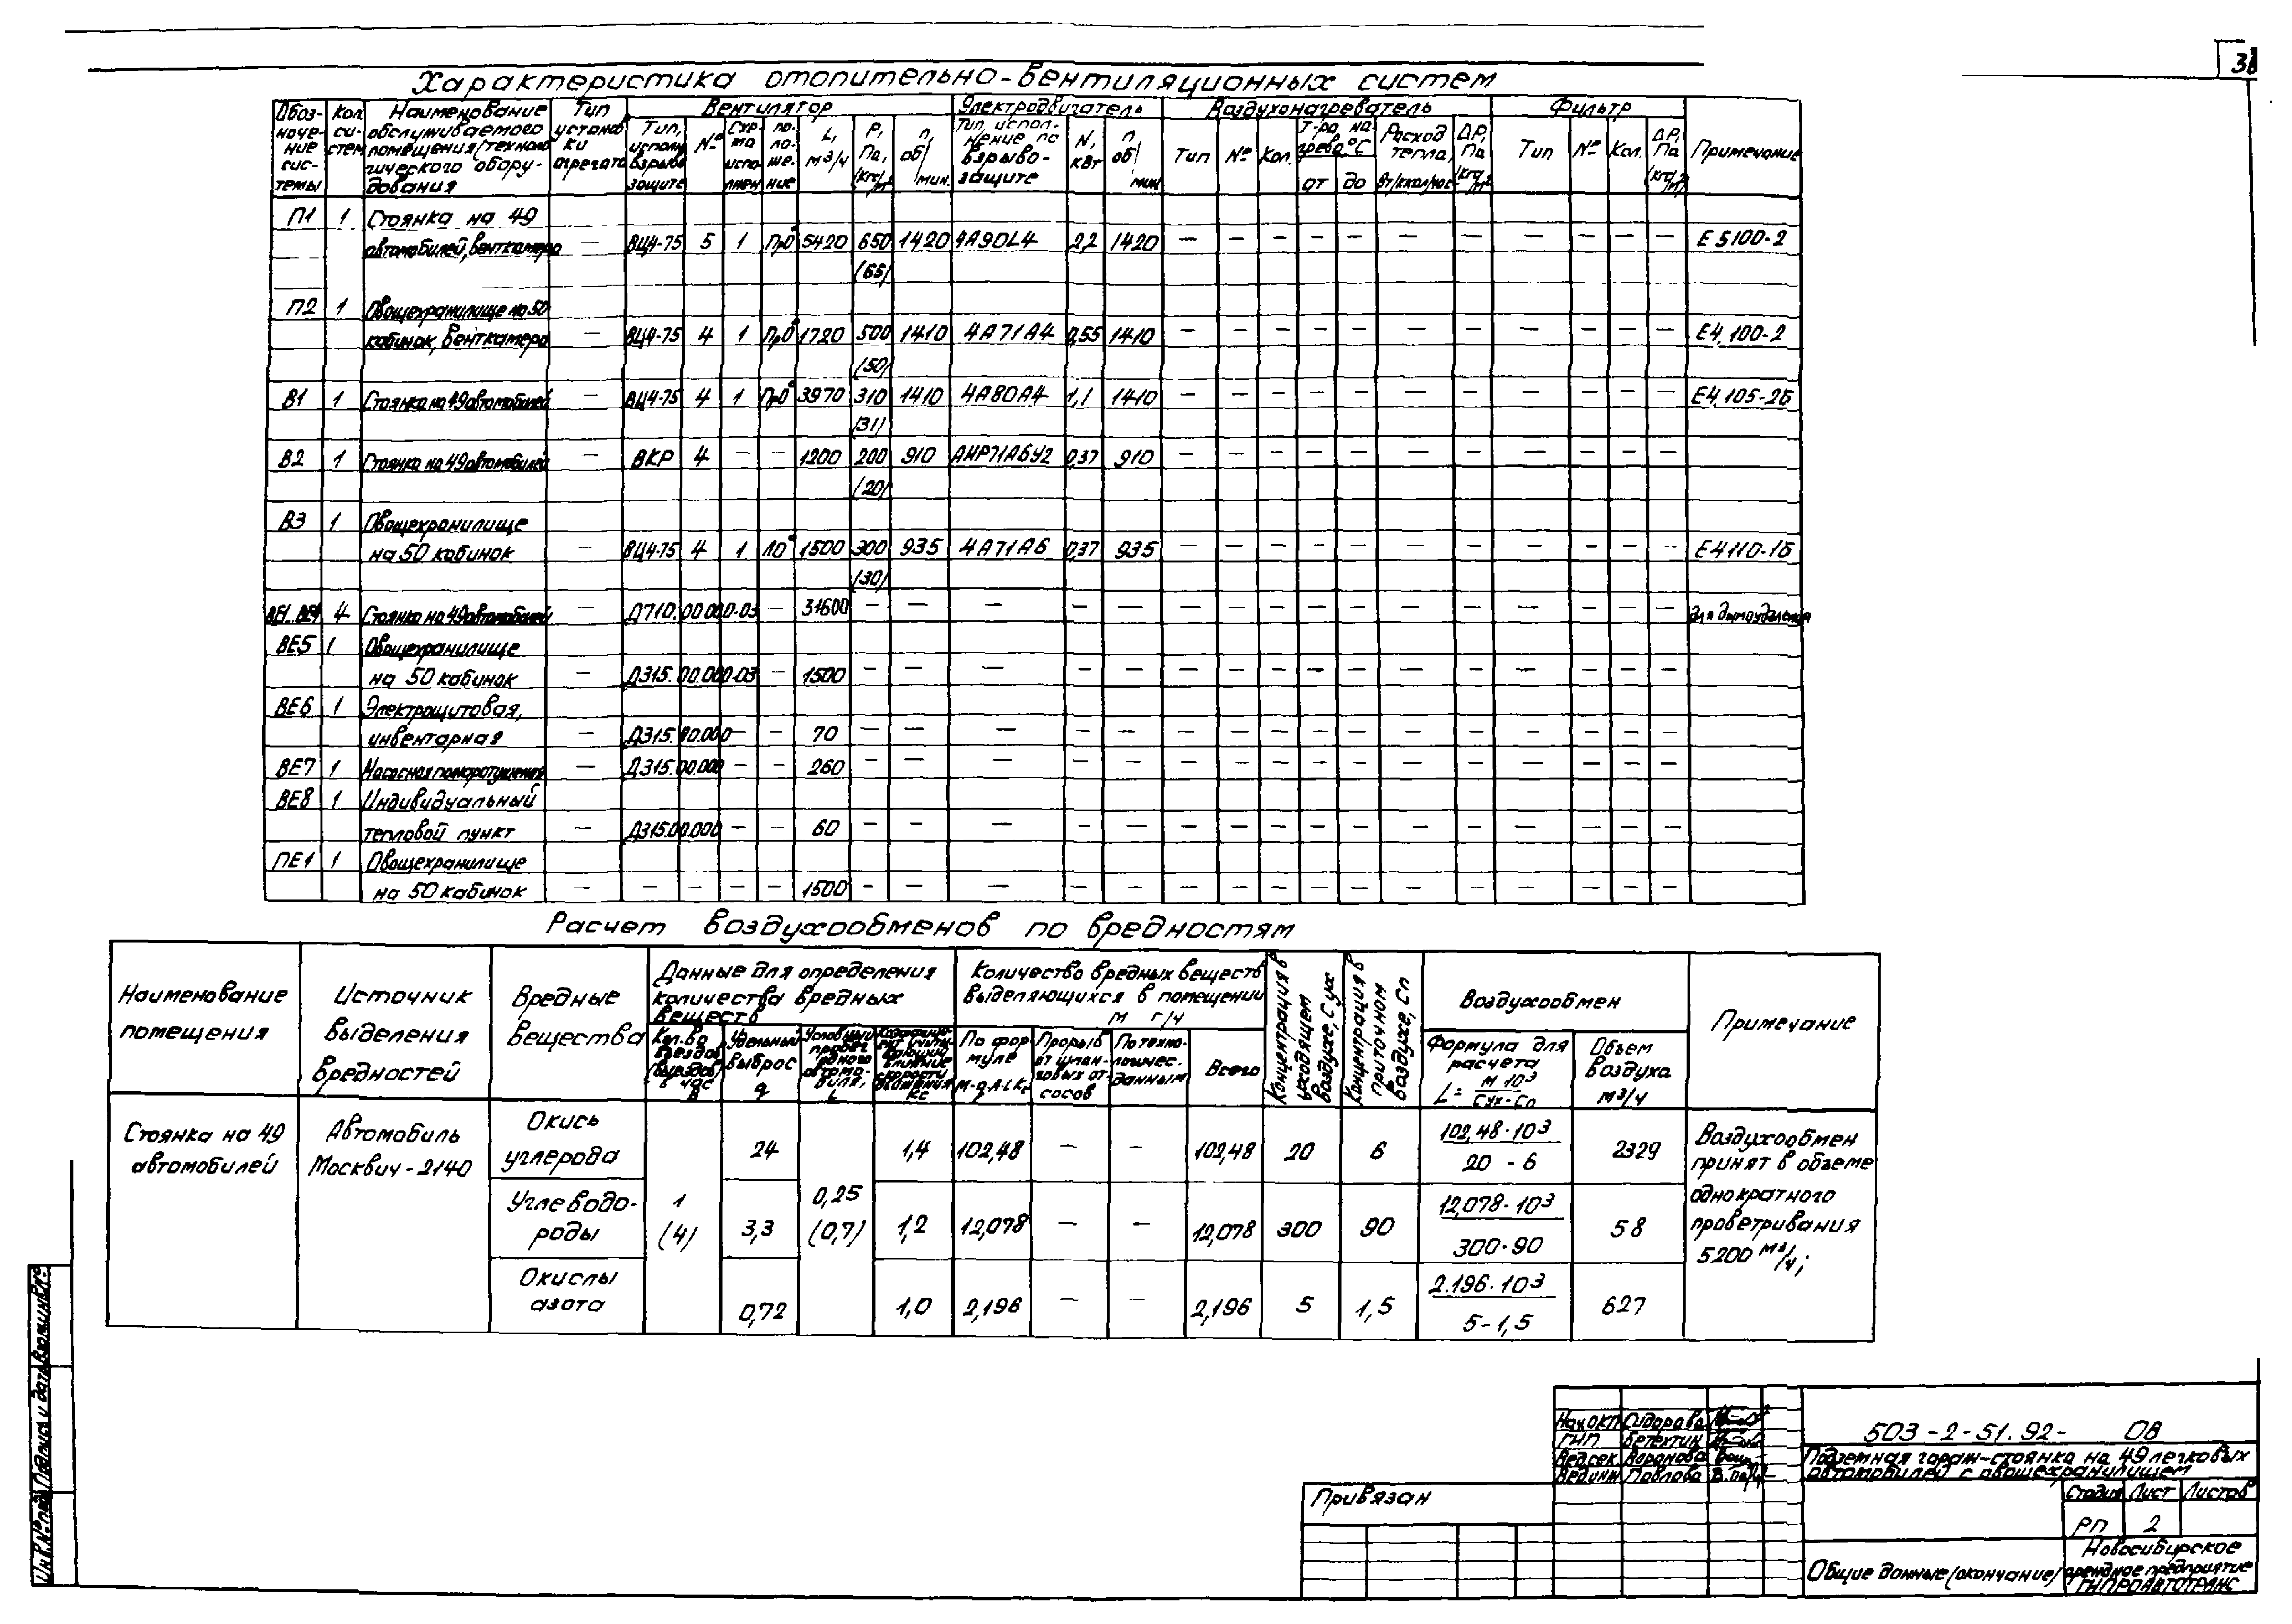 31
Характеристика отопительно-вентиляционных систем
Обоз-наче-ние сис-темы Кол. си-стем Наименование обслуживаемого помещения/техноло-гического обору-дования Тип установ-ки агрегата Вентилятор Электродвигатель Воздухонагреватель Фильтр Примечание
Тип, исполн. взрыво защите № Схе-ма испо-лнен. по-ло-же-ние L, м³/ч P, Па, (кгс/м²) n, об/мин. Тип, испол-нение по взрыво-защите N, кВт n, об/мин Тип № Кол. Т-ра, на-грева °С от до Расход тепла, Вт/ккал/час ΔP, Па (кгс/м²) Тип № Кол. ΔP, Па (кгс/м²)
П1 1 Стоянка на 49
автомобилей, венткамера — ВЦ4-75 5 1 Пр0° 5420 650 1420 4А90L4 2,2 1420 — — — — — — — — — — — Е 5100-2
(65)
П2 1 Овощехранилище на 50
кабинок, венткамера — ВЦ4-75 4 1 Пр0° 1720 500 1410 4А71А4 0,55 1410 — — — — — — — — — — — Е4.100-2
(50)
В1 1 Стоянка на 49 автомобилей — ВЦ4-75 4 1 Пр0° 3970 310 1410 4А80А4 1,1 1410 — — — — — — — — — — — Е4.105-2б
(31)
В2 1 Стоянка на 49 автомобилей — ВКР 4 — — 1200 200 910 АИР71А6У2 0,37 910 — — — — — — — — — — —
(20)
В3 1 Овощехранилище
на 50 кабинок — ВЦ4-75 4 1 Л0° 1500 300 935 4А71А6 0,37 935 — — — — — — — — — — — Е4110-1б
(30)
ВЕ1..ВЕ4 4 Стоянка на 49 автомобилей — Д710.00.000-03 — 31600 — — — — — — — — — — — — — — — — для дымоудаления
ВЕ5 1 Овощехранилище
на 50 кабинок — Д315.00.000-03 — 1500 — — — — — — — — — — — — — — — —
ВЕ6 1 Электрощитовая,
инвентарная — Д315.00.000 — — 70 — — — — — — — — — — — — — — — —
ВЕ7 1 Насосная пожаротушения — Д315.00.000 — — 260 — — — — — — — — — — — — — — — —
ВЕ8 1 Индивидуальный
тепловой пункт — Д315.00.000 — — 60 — — — — — — — — — — — — — — — —
ПЕ1 1 Овощехранилище
на 50 кабинок — — — — — 1500 — — — — — — — — — — — — — — — —
Расчет воздухообменов по вредностям
Наименование помещения Источник выделения вредностей Вредные вещества Данные для определения количества вредных веществ Количество вредных веществ выделяющихся в помещении М г/ч Концентрация в уходящем воздухе, Сух Концентрация в приточном воздухе, Сп Воздухообмен Примечание
Кол-во въездов (выездов) в час А Удельный выброс q Условный пробег одного автомо-биля, L Коэффици-ент, учиты-вающий влияние скорости движения Кс По фор-муле М=q·A·L·Kc Прорыв от цилин-ховых от-сосов По техно-логичес. данным Всего Формула для расчета L = М·10³ / Сух-Сп Объем воздуха м³/ч
Стоянка на 49 автомобилей Автомобиль Москвич-2140 Окись углерода 24 1,4 102,48 — — 102,48 20 6 102,48·10³ / 20 - 6 2329 Воздухообмен принят в объеме однократного проветривания 5200 м³/ч;
Углеводо-роды 1 (4) 3,3 0,25 (0,7) 1,2 12,078 — — 12,078 300 90 12,078·10³ / 300-90 58
Окислы азота 0,72 1,0 2,196 — — 2,196 5 1,5 2.196·10³ / 5-1,5 627
Инв.№ подл. Подпись и дата Взам.инв.№
Нач.ОКП Сидорова
ГИП Бетехтин
Вед.сек. Воронова
Вед.инж Павлова
503-2-51.92- ОВ
Подземная гараж-стоянка на 49 легковых
автомобилей с овощехранилищем
Привязан
Стадия Лист Листов
РП 2
Общие данные (окончание)
Новосибирское
арендное предприятие
ГИПРОАВТОТРАНС